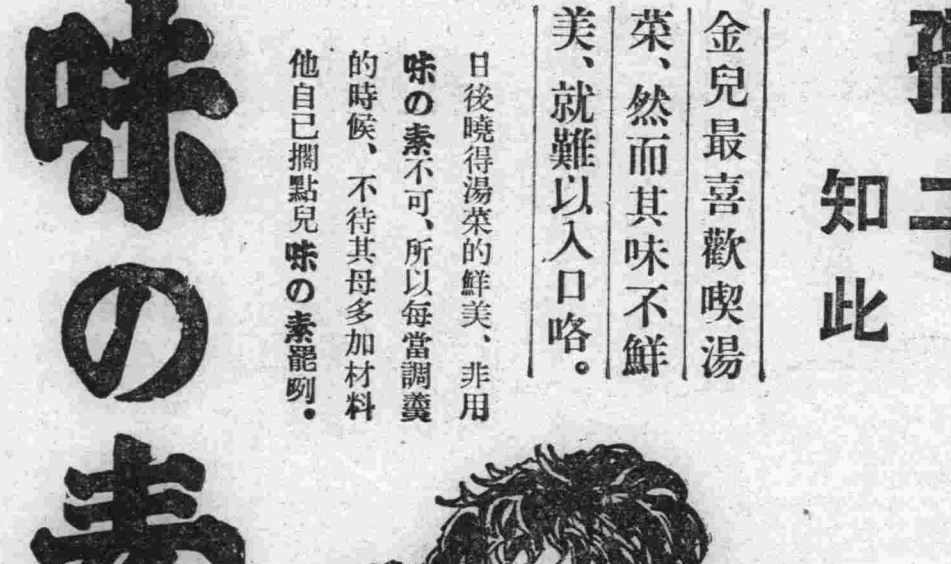 知此
金兒最喜歡喫湯
菜、然而其味不鮮
美、就難以入口咯。
日後曉得湯菜的鮮美、非用
味の素不可、所以每當調羹
的時候、不待其母多加材料
他自己擱點兒味の素罷咧。
味の素